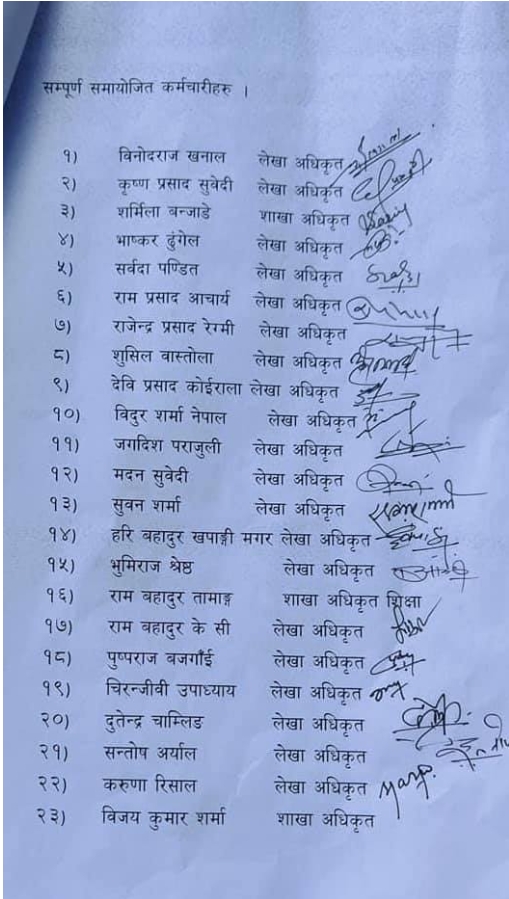 सम्पूर्ण समायोजित कर्मचारीहरु ।
१) विनोदराज खनाल लेखा अधिकृत
२) कृष्ण प्रसाद सुवेदी लेखा अधिकृत
३) शर्मिला बन्जाडे शाखा अधिकृत
४) भाष्कर ढुंगेल लेखा अधिकृत
५) सर्वदा पण्डित लेखा अधिकृत
६) राम प्रसाद आचार्य लेखा अधिकृत
७) राजेन्द्र प्रसाद रेग्मी लेखा अधिकृत
८) शुसिल वास्तोला लेखा अधिकृत
९) देवि प्रसाद कोईराला लेखा अधिकृत
१०) विदुर शर्मा नेपाल लेखा अधिकृत
११) जगदिश पराजुली लेखा अधिकृत
१२) मदन सुवेदी लेखा अधिकृत
१३) सुवन शर्मा लेखा अधिकृत
१४) हरि बहादुर खपाङ्गी मगर लेखा अधिकृत
१५) भुमिराज श्रेष्ठ लेखा अधिकृत
१६) राम बहादुर तामाङ्ग शाखा अधिकृत शिक्षा
१७) राम बहादुर के सी लेखा अधिकृत
१८) पुष्पराज बजगाँई लेखा अधिकृत
१९) चिरन्जीवी उपाध्याय लेखा अधिकृत
२०) दुतेन्द्र चाम्लिङ लेखा अधिकृत
२१) सन्तोष अर्याल लेखा अधिकृत
२२) करुणा रिसाल लेखा अधिकृत
२३) विजय कुमार शर्मा शाखा अधिकृत